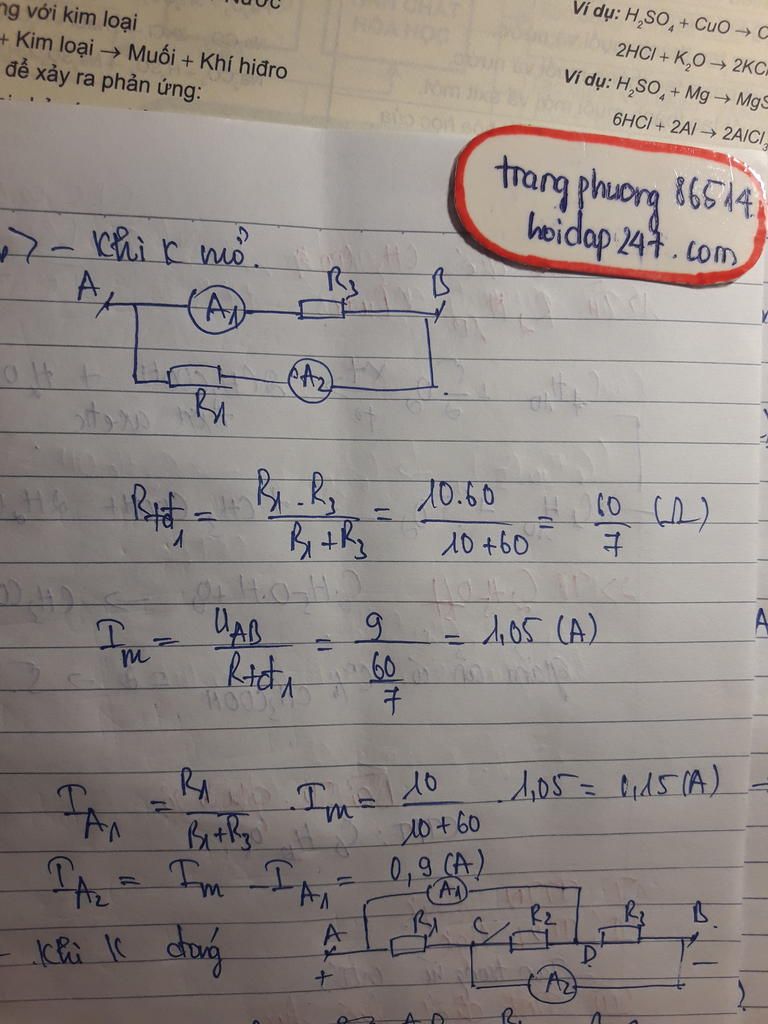 ng với kim loại
+ Kim loại → Muối + Khí hiđro
để xảy ra phản ứng:
Ví dụ: H₂SO₄ + CuO → C
2HCl + K₂O → 2KCl
Ví dụ: H₂SO₄ + Mg → MgS
6HCl + 2Al → 2AlCl₃
trang phuong 86514
hoidap247.com
> - Khi K mở.
A A1 R3 B
R1 A2
Rtđ1 = R1 . R3 / R1 + R3 = 10.60 / 10+60 = 60/7 (Ω)
Im = UAB / Rtđ1 = 9 / 60/7 = 1,05 (A)
IA1 = R1 / R1+R3 . Im = 10 / 10+60 . 1,05 = 0,15 (A)
IA2 = Im - IA1 = 0,9 (A)
- Khi K đóng
A1
A R1 C R2 D R3 B
+ -
A2